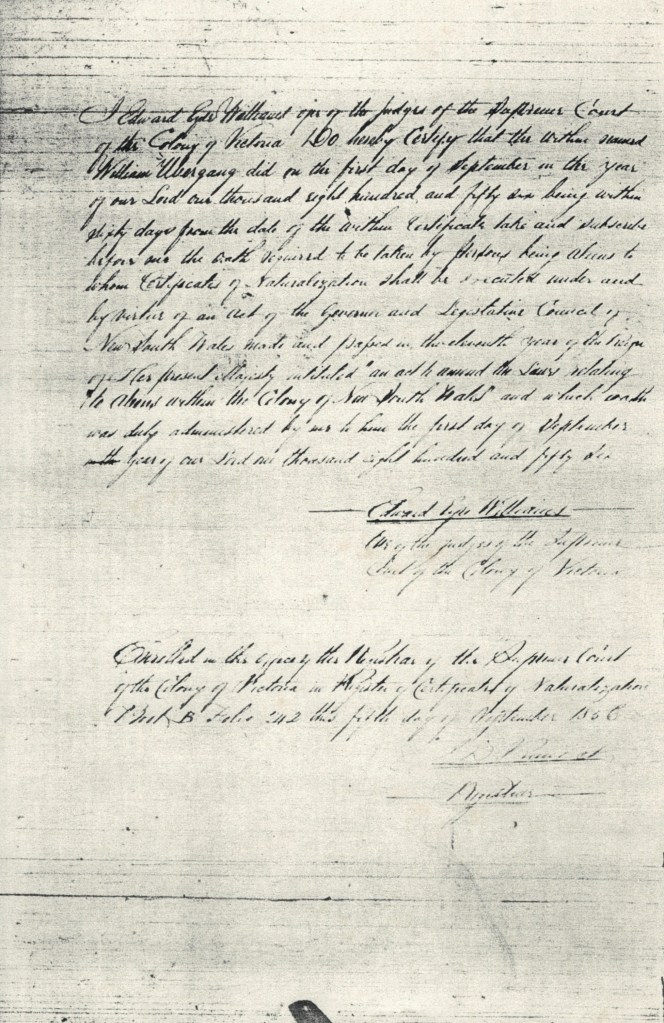 I Edward Eyre Williams one of the judges of the Supreme Court
of the Colony of Victoria Do hereby Certify that the within named
William Ubergang did on the first day of September in the year
of our Lord one thousand eight hundred and fifty six being within
sixty days from the date of the within Certificate take and subscribe
before me the oath required to be taken by persons being aliens to
whom Certificates of Naturalization shall be executed under and
by virtue of an Act of the Governor and Legislative Council of
New South Wales made and passed in the eleventh year of the reign
of Her present Majesty intituled "an act to amend the Laws relating
"to Aliens within the Colony of New South Wales" and which oath
was duly administered by me to him the first day of September
year of our Lord one thousand eight hundred and fifty six
Edward Eyre Williams
One of the judges of the Supreme
Court of the Colony of Victoria
Enrolled in the office of the Registrar of the Supreme Court
of the Colony of Victoria in Register of Certificates of Naturalization
B Folio 242 this fifth day of September 1856
Registrar